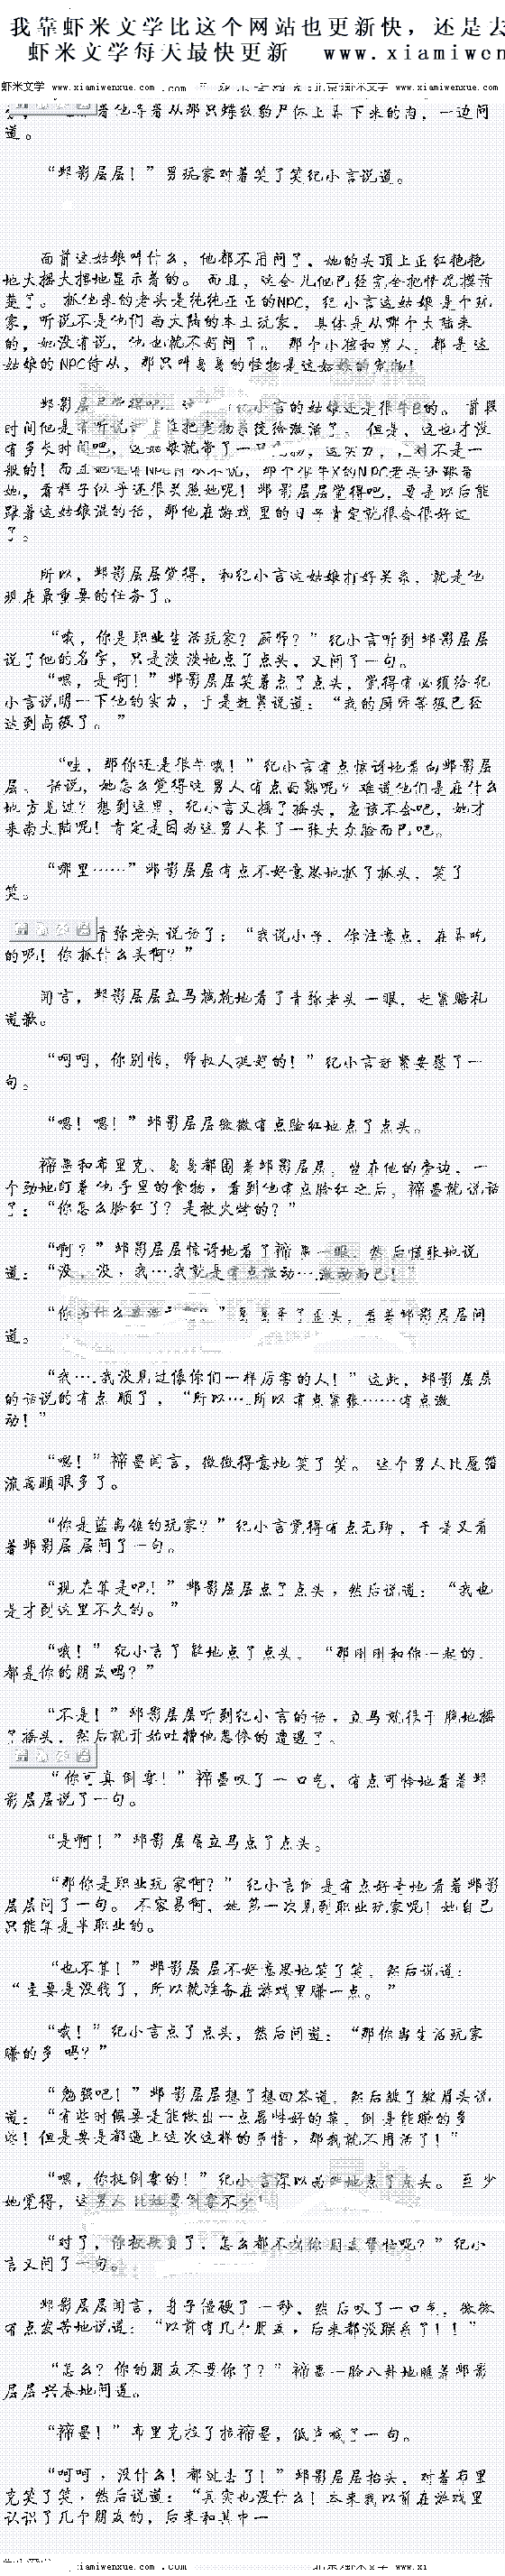 我靠虾米文学比这个网站也更新快，还是去
虾米文学每天最快更新 www.xiamiwen
虾米文学 www.xiamiwenxue.com
道。
“邺影层层！”男玩家对着笑了笑纪小言说道。
而前这姑娘叫什么，他都不用问了，她的头顶上正红艳艳
地大摇大摆地显示着的。而且，这会儿他已经完全把情况摸清
楚了。抓他来的老头是纯纯正正的NPC，纪小言这姑娘是个玩
家，听说不是他们西大陆的本土玩家，具体是从哪个大陆来
的，她没有说，他也就不好问了。那个小孩和男人，都是这
姑娘的NPC侍从，那只叫鸟鸟的怪物是这姑娘的宠物！
她，看样子似乎还很关照她呢！邺影层层觉得吧，要是以后能
跟着这姑娘混的话，那他在游戏里的日子肯定就很会很好过
了。
所以，邺影层层觉得，和纪小言这姑娘打好关系，就是他
现在最重要的任务了。
“哦，你是职业生活玩家？厨师？”纪小言听到邺影层层
说了他的名字，只是淡淡地点了点头，又问了一句。
“嗯，是啊！”邺影层层笑着点了点头，觉得有必须给纪
小言说明一下他的实力，于是赶紧说道：“我的厨师等级已经
达到高级了。”
“哇，那你还是很牛哦！”纪小言有点惊讶地看向邺影层
层。话说，她怎么觉得这男人有点面熟呢？难道他们是在什么
地方见过？想到这里，纪小言又摇了摇头，应该不会吧，她才
来南大陆呢！肯定是因为这男人长了一张大众脸而已吧。
“哪里……”邺影层层有点不好意思地抓了抓头，笑了
笑。
青弥老头说话了：“我说小子，你注意点，在弄吃
的呢！你抓什么头啊？”
闻言，邺影层层立马尴尬地看了青弥老头一眼，赶紧赔礼
道歉。
“呵呵，你别怕，师叔人挺好的！”纪小言赶紧安慰了一
句。
“嗯！嗯！”邺影层层微微有点脸红地点了点头。
褅墨和布里克、鸟鸟都围着邺影层层，坐在他的旁边，一
个劲地盯着他手里的食物，看到他有点脸红之后，褅墨就说话
了：“你怎么脸红了？是被火烤的？”
“啊？”邺影层层惊讶地看了褅墨一眼，然后慌张地说
道：“没，没，我…我就是有点激动…激动而已！”
道。
“我…我没见过像你们一样厉害的人！”这此，邺影层层
的话说的有点顺了，“所以…所以有点紧张……有点激
动！”
“嗯！”褅墨闻言，微微得意地笑了笑。这个男人比愿猫
流离顺眼多了。
“你是蓝离镇的玩家？”纪小言觉得有点无聊，于是又看
着邺影层层问了一句。
“现在算是吧！”邺影层层点了点头，然后说道：“我也
是才到这里不久的。”
“哦！”纪小言了解地点了点头。“那刚刚和你一起的，
都是你的朋友吗？”
“不是！”邺影层层听到纪小言的话，立马就很干脆地摇
了摇头，然后就开始吐槽他悲惨的遭遇了。
“你可真倒霉！”褅墨叹了一口气，有点可怜地看着邺
影层层说了一句。
“是啊！”邺影层层立马点了点头。
“那你是职业玩家啊？”纪小言倒是有点好奇地看着邺影
层层问了一句。不容易啊，她第一次见到职业玩家呢！她自己
只能算是半职业的。
“也不算！”邺影层层不好意思地笑了笑，然后说道：
“主要是没钱了，所以就准备在游戏里赚一点。”
“哦！”纪小言点了点头，然后问道：“那你当生活玩家
赚的多吗？”
“勉强吧！”邺影层层想了想回答道，然后皱了皱眉头说
道：“有些时候要是能做出一点属性好的菜，倒是能赚的多
些！但是要是都遇上这次这样的事情，那我就不用活了！”
“嗯，你挺倒霉的！”纪小言深以为然地点了点头。至少
她觉得，这男人比她要倒霉不少！
“对了，你被欺负了，怎么都不找你朋友帮忙呢？”纪小
言又问了一句。
邺影层层闻言，身子僵硬了一秒，然后叹了一口气，微微
有点发苦地说道：“以前有几个朋友，后来都没联系了！！”
“怎么？你的朋友不要你了？”褅墨一脸八卦地瞧着邺影
层层兴奋地问道。
“褅墨！”布里克拉了拉褅墨，低声喊了一句。
“呵呵，没什么！都过去了！”邺影层层抬头，对着布里
克笑了笑，然后说道：“其实也没什么！本来我以前在游戏里
认识了几个朋友的，后来和其中一